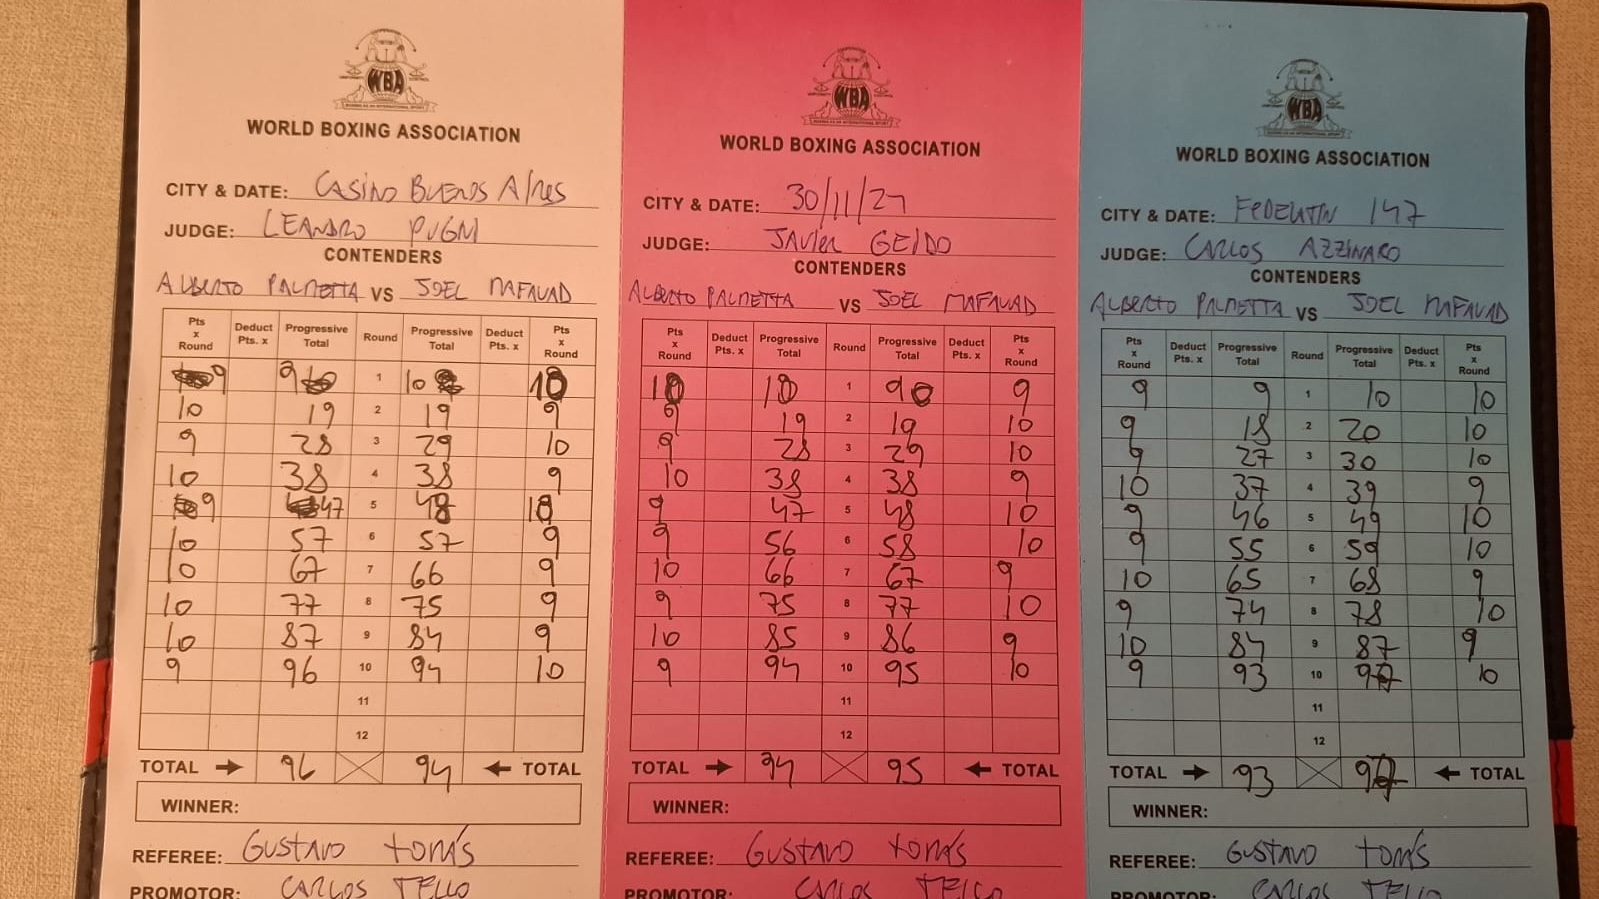 WBA
WORLD BOXING ASSOCIATION
CITY & DATE: CASINO BUENOS AIRES
JUDGE: LEANDRO PUGNI
CONTENDERS
ALBERTO PALMETTA VS JOEL MAFAUAD
Pts x Round Deduct Pts. x Progressive Total Round Progressive Total Deduct Pts. x Pts x Round
9 9 1 10 10
10 19 2 19 9
9 28 3 29 10
10 38 4 38 9
9 47 5 48 10
10 57 6 57 9
10 67 7 66 9
10 77 8 75 9
10 87 9 84 9
9 96 10 94 10
11
12
TOTAL 96 94 TOTAL
WINNER:
REFEREE: GUSTAVO TOMÁS
PROMOTOR: CARLOS TELLO
WBA
WORLD BOXING ASSOCIATION
CITY & DATE: 30/11/24
JUDGE: JAVIER GEIDO
CONTENDERS
ALBERTO PALMETTA VS JOEL MAFAUAD
Pts x Round Deduct Pts. x Progressive Total Round Progressive Total Deduct Pts. x Pts x Round
10 10 1 9 9
9 19 2 19 10
9 28 3 29 10
10 38 4 38 9
9 47 5 48 10
9 56 6 58 10
10 66 7 67 9
9 75 8 77 10
10 85 9 86 9
9 94 10 95 10
11
12
TOTAL 94 95 TOTAL
WINNER:
REFEREE: GUSTAVO TOMÁS
PROMOTOR: CARLOS TELLO
WBA
WORLD BOXING ASSOCIATION
CITY & DATE: FEDELATIN 147
JUDGE: CARLOS AZZINARO
CONTENDERS
ALBERTO PALMETTA VS JOEL MAFAUAD
Pts x Round Deduct Pts. x Progressive Total Round Progressive Total Deduct Pts. x Pts x Round
9 9 1 10 10
9 18 2 20 10
9 27 3 30 10
10 37 4 39 9
9 46 5 49 10
9 55 6 59 10
10 65 7 68 9
9 74 8 78 10
10 84 9 87 9
9 93 10 97 10
11
12
TOTAL 93 97 TOTAL
WINNER:
REFEREE: GUSTAVO TOMÁS
PROMOTOR: CARLOS TELLO